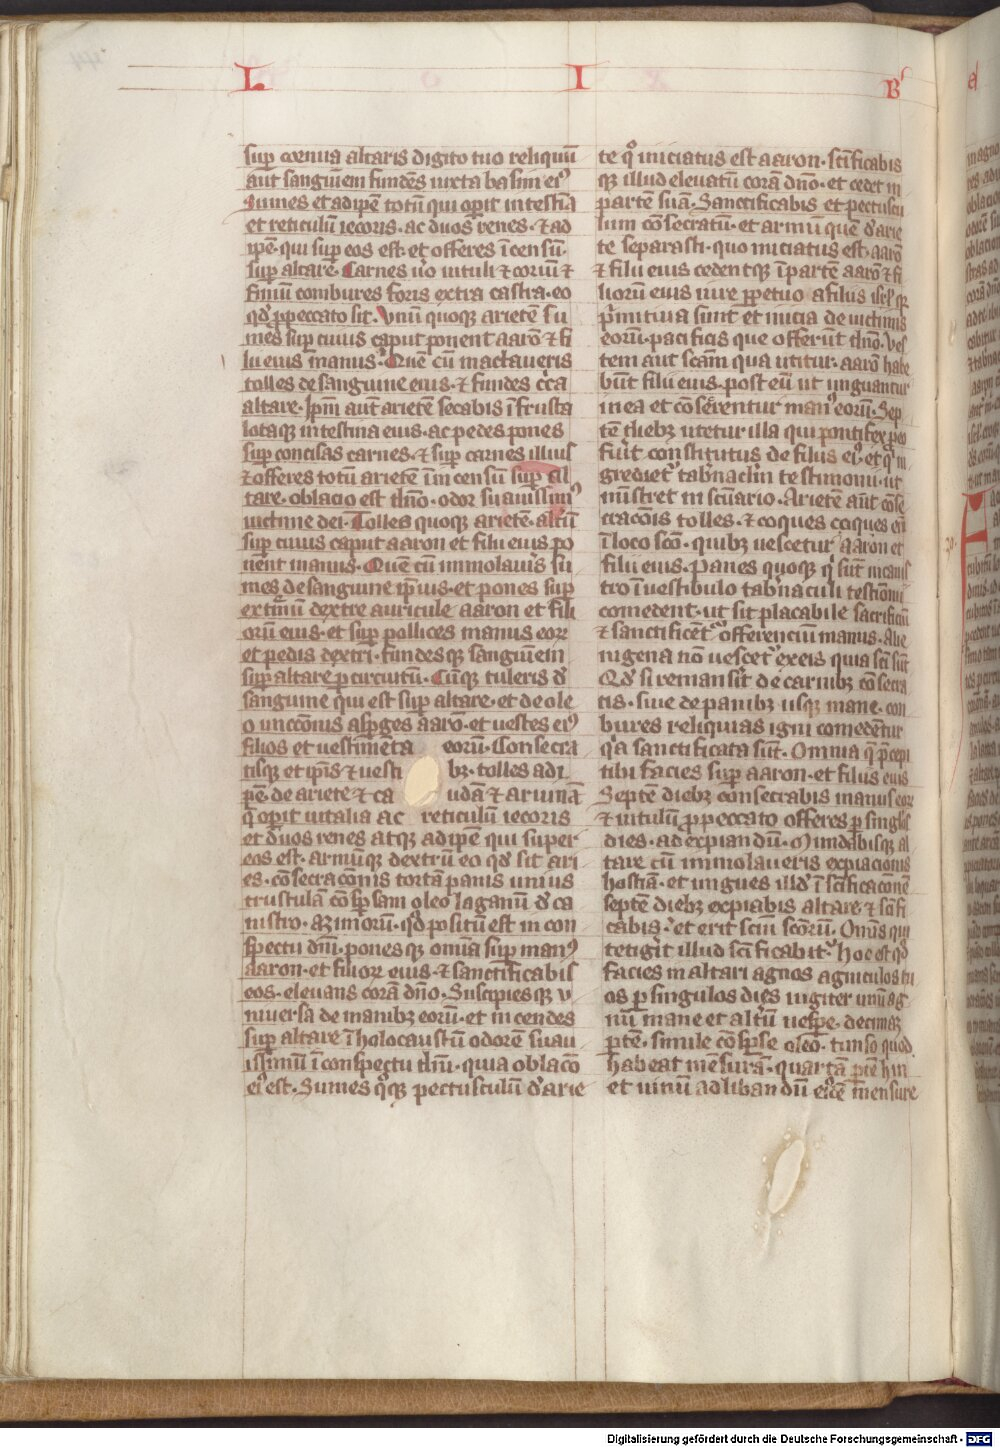 L I B
sup̲ cornua altaris digito tuo reliquū
aut sanguinem fundēs iuxta basim eiꝰ
Sumes et adipē totū qui op̲it intestīa
et reticulū iecoris· ac duos renes· ⁊ ad
ipē· qui sup̲ eos est· et offeres īcensū·
sup̲ altare· Carnes u̾o uituli ⁊ coriū ⁊
fimū combures foris extra castra· eo
qd̾ p̲peccato sit· Vnū quoqꝫ arietē su
mes sup̲ cuius caput ponent aarō ⁊ fi
lii eius manus· Quē cū mactaueris
tolles de sanguine eius· ⁊ fundes c̾ca
altare· Ip̄m aūt arietē secabis ī frusta
lotaqꝫ intestina eius· ac pedes pones
sup̲ concisas carnes· ⁊ sup̲ carnes illius
⁊ offeres totū arietē īincensū sup̲ al
tare· oblacio est dn̄o· odor suauissimꝰ
uictime dei· Tolles quoqꝫ arietē· altū
sup̲ cuius caput aaron et filii eius po
nent manus· Quē cū immolauis̾ su
mes de sanguine ip̄ius· et pones sup̲
extmū dextre auricule aaron et fili
orū eius· et sup̲ pollices manus eoꝝ
et pedis dextri· fundesqꝫ sanguinem
sup̲ altare p̲ circuitū· Cūqꝫ tuleris d̾
sanguine qui est sup̲ altare· et de ole
o unccōnis asp̲ges aarō· et uestes eiꝰ
filios et uestimēta eorū· Consecra
tisqꝫ et ip̄is ⁊ uesti bꝫ· tolles adi
pē· de ariete ⁊ ca udā ⁊ aruinā
q̄ op̲it uitalia ac reticulū iecoris
et duos renes atqꝫ adipē qui super
eos est· armūqꝫ dextrū eo qd̾ sit ari
es· cōsecracōnis tortā panis unius
trustulā cōsp̲sam oleo laganū d̾ ca
nistro· azimorū· qd̾ positū est in con
spectu dn̄i· ponesqꝫ omīa sup̲ manꝰ
aaron· et filioꝝ eius· ⁊ sanctificabis
eos· eleuans corā dn̄o· Suscipiesqꝫ v
niuersa de manibꝫ eorū· et incendes
sup̲ altare ī holocaustū odorē suau
issimū ī conspectu dn̄i· quia oblacō
eiꝰ est· Sumes qꝫqꝫ pectusculū d̾ arie
te qͦ iniciatus est aaron· sc̄ificabis
qꝫ illud eleuatū corā dn̄o· et cedet in
partē suā· Sanctificabis et pectuscu
lum cōsecratū· et armū quē d̾ arie
te separasti· quo iniciatus est· aarō
⁊ filii eius cedentqꝫ ī partē aarō ⁊ fi
liorū eius iure p̲petuo a filiis isrl̾ qꝫ
p̾mitiua sunt et inicia de uictimis
eorū· pacificis que offerūt dn̄o· Ves
tem aut̄ scām qua utitur· aarō habe
būt filii eius· post eū ut unguantur
in ea et cōsecrentur manꝰ eorū· Sep
tē diebꝫ utetur illa qui pontifex p̲ eo
fuīt constitutus de filiis eiꝰ· et q̾ in
gredietᷣ tab̾nac̄lm testimonii· ut
mīstret in sc̄uario· Arietē aūt cōse
cracōīs tolles· ⁊ coques coques eū
ī loco sc̄o· quibꝫ uescetur aaron et
filii eius· Panes quoqꝫ q̾ sūt in canis
tro ī uestibulo tab̾naculi testīonii
comedent· ut sit placabile sacrificiū
⁊ sanctificētᷣ offerencium manus· Alie
nigena nō uescetᷣ ex eis quia sc̄i sūt
Qd̾ si remansīt de carnibꝫ cōsecra
tis· siue de panibꝫ usqꝫ mane· con
bures reliquias igni comedētur
q̾a sanctificata sūt· Omnia q̄ p̄cepi
tibi facies sup̲ aaron· et filiis eius
Septē diebꝫ consecrabis manus eoꝝ
⁊ uitulū p̲ peccato offeres p̲ singl̾os
dies· ad expiandū· Mundabisqꝫ al
tare cū immolaueris expiacionis
hostiā· et ungues ill̾d ī sc̄ificacōnē
septē diebꝫ expiabis altare ⁊ sc̄ifi
cabis· et erit sc̄m sc̄orū· Om̄is qui
tetigīt illud sc̄ificabitᷣ· Hoc est qd̾
facies in altari agnos agniculos du
os p̲ singulos dies iugiter unū ag
nū mane et altū uesp̲e· decimā
p̲tē· simile cōsp̲se oleo· tunso quod
habeat mēsurā· quartā p̲tē hin
et uinū ad libandū eiꝰdē mensure
30·
Digitalisierung gefördert durch die Deutsche Forschungsgemeinschaft · DFG